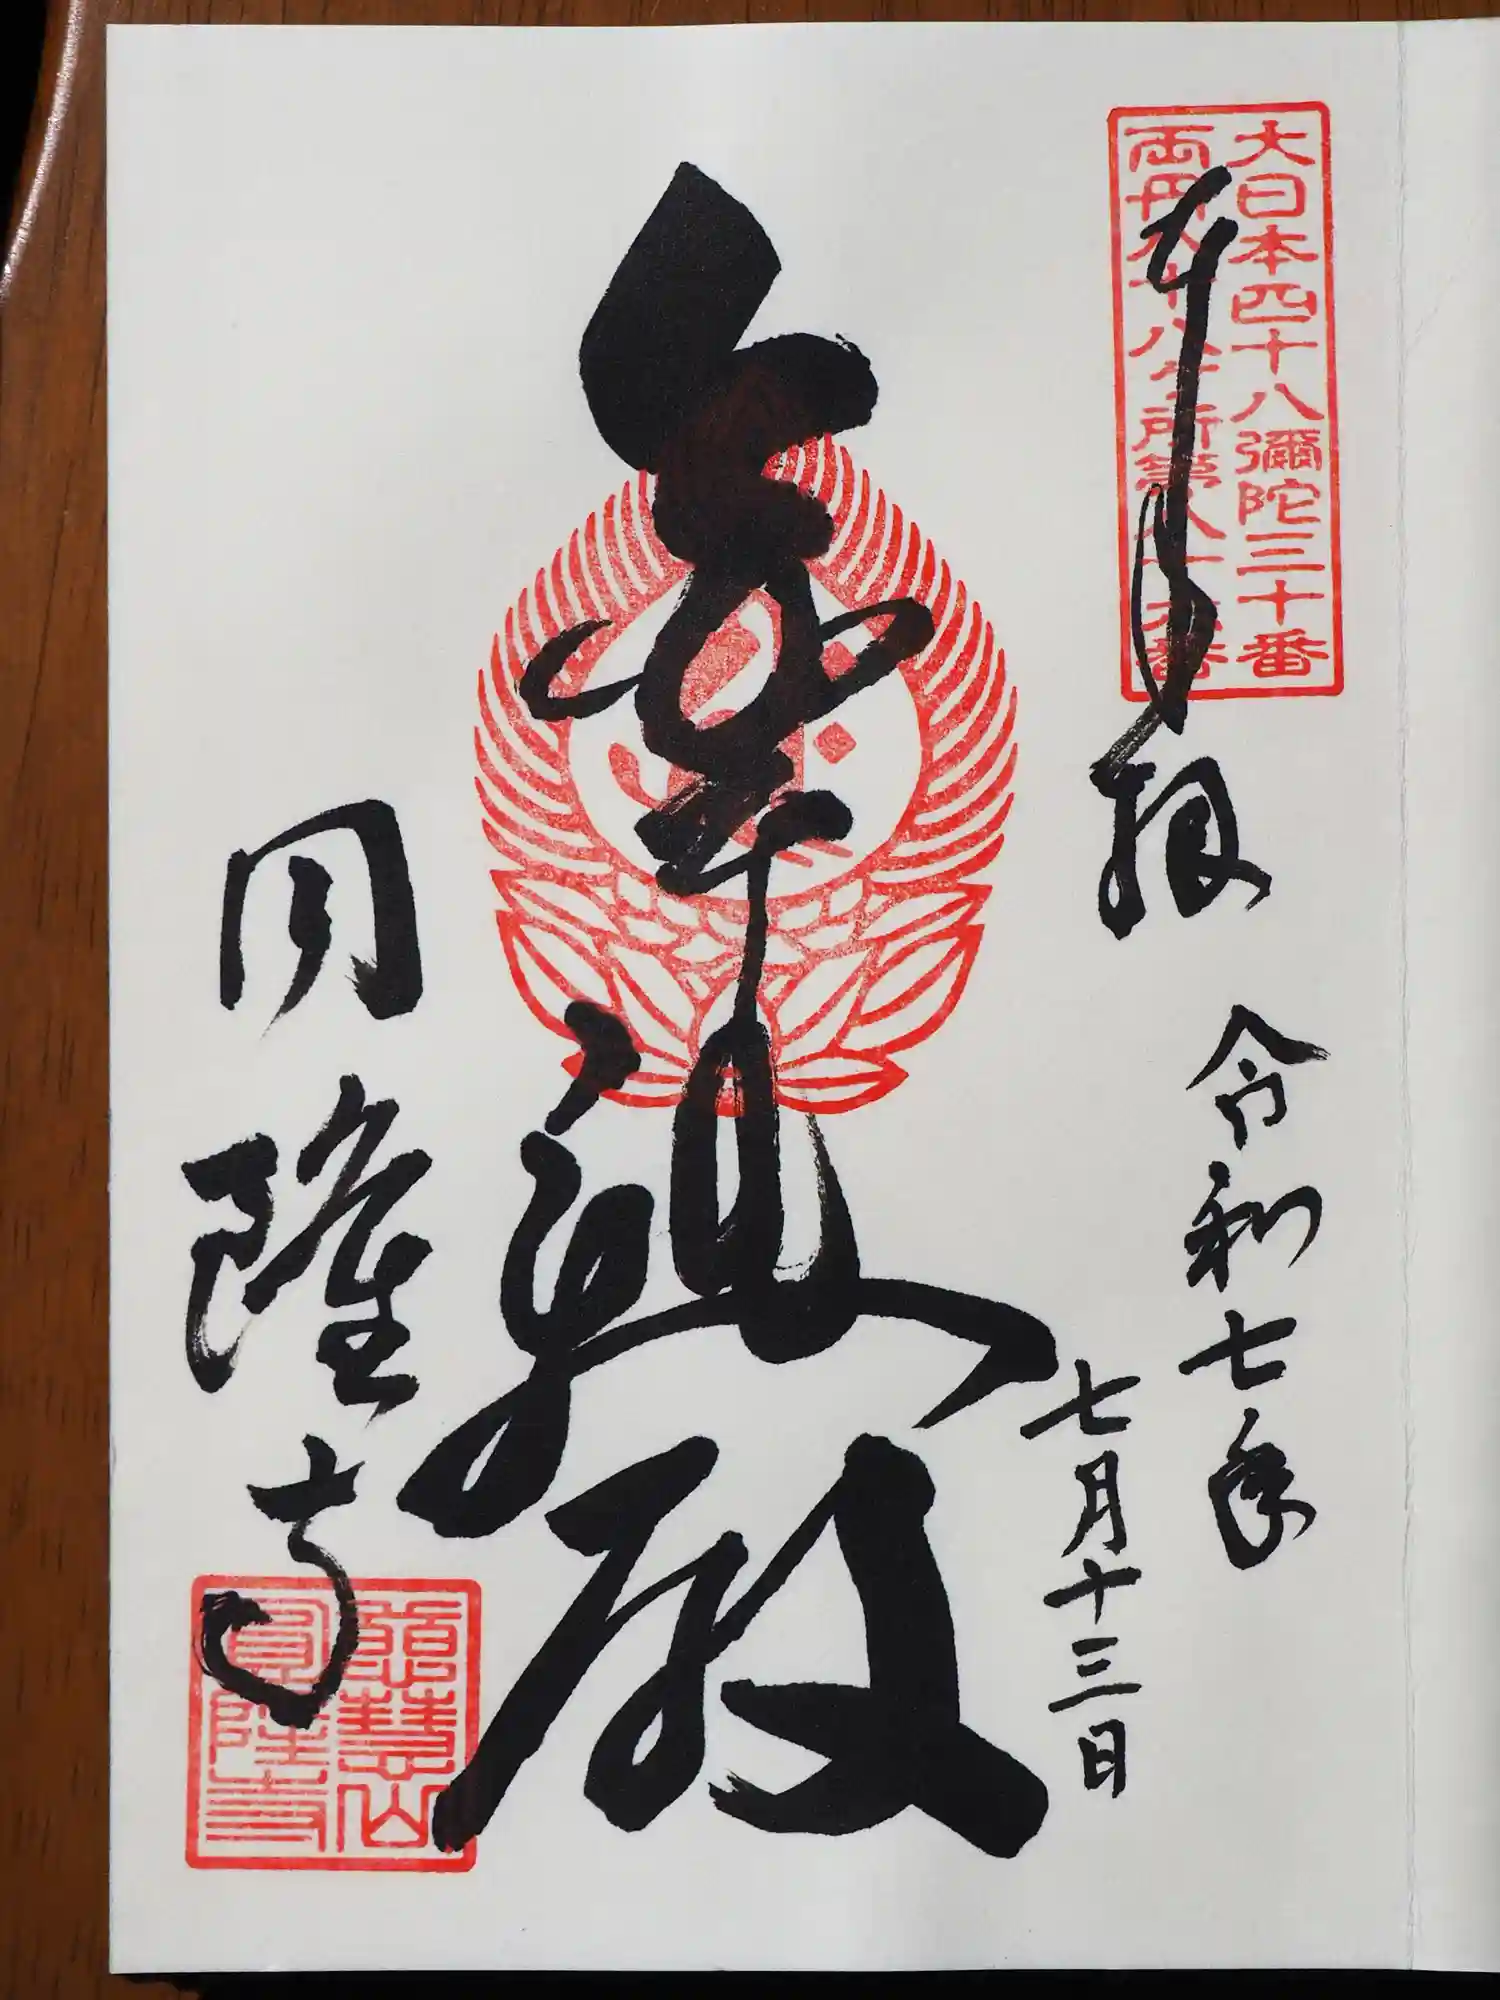 大日本四十八彌陀三十番
両丹八十八ヶ所第八十六番
奉拝
令和七年
七月十三日
殿
円隆寺
慈慧山
圓隆寺